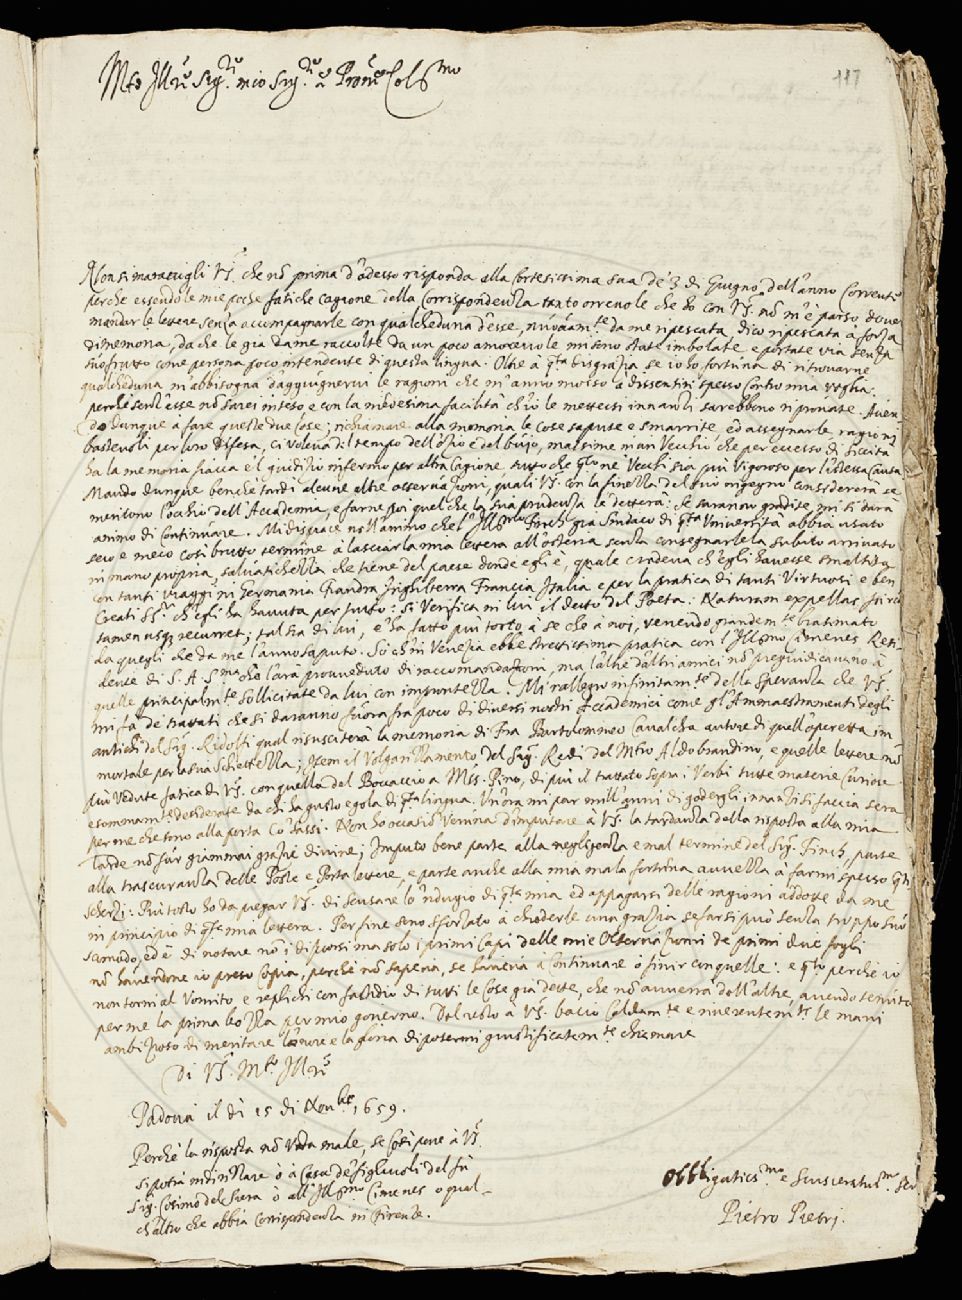 117
Mto Illre Sigre mio Sigre e Prone Colmo
Non si maravigli VS. che nõ prima d'adesso risponda alla cortesissima sua de 3 di Giugno dell'anno corrente
perche essendo le mie poche fatiche cagione della corrispondenza tanto orrevole che ho con VS. nõ m'è parso dover
mandar le lettere senza accompagnarle con qualcheduna d'esse, nuovamte da me ripescata, dico ripescata à forza
di memoria, da che le già da me raccolte da un poco amorevole mi sono state imbolate e portate via senza
suo frutto come persona poco intendente di questa lingua. Oltre à qta bisogna se io ho fortuna di ritrovarne
qualcheduna m'abbisogna d'aggiugnervi le ragioni che m'anno mosso à dissentir spesso contro mia voglia.
perche senz'esse nõ sarei inteso e con la medesima facilità ch'io le mettessi innanzi sarebbono riprovate. Aven
do dunque à fare queste due cose; richiamare alla memoria le cose sapute e smarrite ed assegnarle ragioni
bastevoli per loro difesa, ci voleva di tempo dell'ozio e dal bujo, massime in un Vecchio che per eccesso di siccità
ha la memoria fiacca e'l giudizio infermo per altra cagione tutto che qto ne Vecchi sia più vigoroso per l'istessa causa
Mando dunque benche tardi alcune altre osservazioni, quali VS. con la finezza del suo ingegno considererà se
meritono l'occhio dell'Accademia, e farne poi quel che la sua prudenza le detterà: se saranno gradite, mi si darà
animo di continuare. Mi dispiace nell'animo che l'Illmo Finch già Sindaco di qta Università abbia usato
seco e meco così brutto termine à lasciar la mia lettera all'osteria senza consegnarle subito arrivato
in mano propria, salvatichezza che tiene del paese donde egli è, quale credeva ch'egli havesse smaltita
con tanti viaggi in Germania Fiandra Inghilterra Francia Italia e per la pratica di tanti Virtuosi e ben
creati SSri ch'egli ha havuta per tutto: si verifica in lui il detto del Poeta: Naturam expellas furca
tamen usq; recurret; tal sia di lui, e ha fatto più torto à se che à noi, venendo grandemte biasimato
da quegli che da me l'anno saputo. Sò ch'in Venezia ebbe strettissima pratica con l'Illmo Ximenes Resi-
dente di S. A. Sma che l'avrà provveduto di raccomandazioni, ma l'altre d'altri amici nõ pregiudicavano à
quelle principalmte sollicitate da lui con impuntezza. Mi rallegro infinitamte della speranza che VS.
mi fà de trattati che si daranno fuora fra poco di diversi nostri Accademici come gl'Ammaestramenti degli
antichi del Sig. Ridolfi qual risusciterà la memoria di Fra Bartolommeo Cavalcha autore di quell'operetta im
mortale per la sua schiettezza; Item il Volgarizzamento, del Sig. Redi del Mro Aldobrandino, e quelle lettere nõ
più vedute fatica di VS. con quella del Boccaccio a Mess. Pino, di più il trattato sopra i Verbi tutte materie curiose
e sommamte desiderate da chi ha gusto e gola di qta lingua. Un'ora mi par mill'anni di godergli innanzi si faccia sera
per me che sono alla porta co' sassi. Non ho occasiõ veruna d'imputare à VS. la tardanza della risposta alla mia
Tarde nõ fur giammai grazie divine; Imputo bene parte alla negligenza e mal termine del Sig. Finch, parte
alla trascuranza delle Poste e Porta lettere, e parte anche alla mia mala fortuna avvezza à farmi spesso qti
scherzi: Più tosto ho da pregar VS. di scusare lo 'ndugio di qta mia ed appagarsi delle ragioni addotte da me
in principio di qta mia lettera. Per fine sono sforzato à chiederle una grazia se farsi può senza troppo suo
scomodo, ed è di notare nõ i discorsi ma solo i primi capi delle mie Osservazioni de primi due fogli
nõ havendone io preso copia, perche nõ sapeva, se haveva à continuare o finir con quelle: e qto perche io
non torni al vomito e replichi con fastidio di tutti le cose già dette, che nõ avverrà dell'altre, avendo tenuto
per me la prima bozza per mio governo. Del resto a VS. bacio caldamte e riverentemte le mani
ambizioso di meritare l'onore e la gloria di potermi giustificatamte chiamare
Di VS. Mto Illre
Padova il dì 15 di Novbre 1659.
Perche la risposta nõ vada male, se così pare à VS.
si potrà indirizzare ò à casa de figliuoli del fu
Sig. Cosimo del Sera ò all'Illmo Cimenes o qual-
ch'altro che abbia corrispondenza in Firenze.
Obbligatissmo e Svisceratissmo Ser
Pietro Pietri.